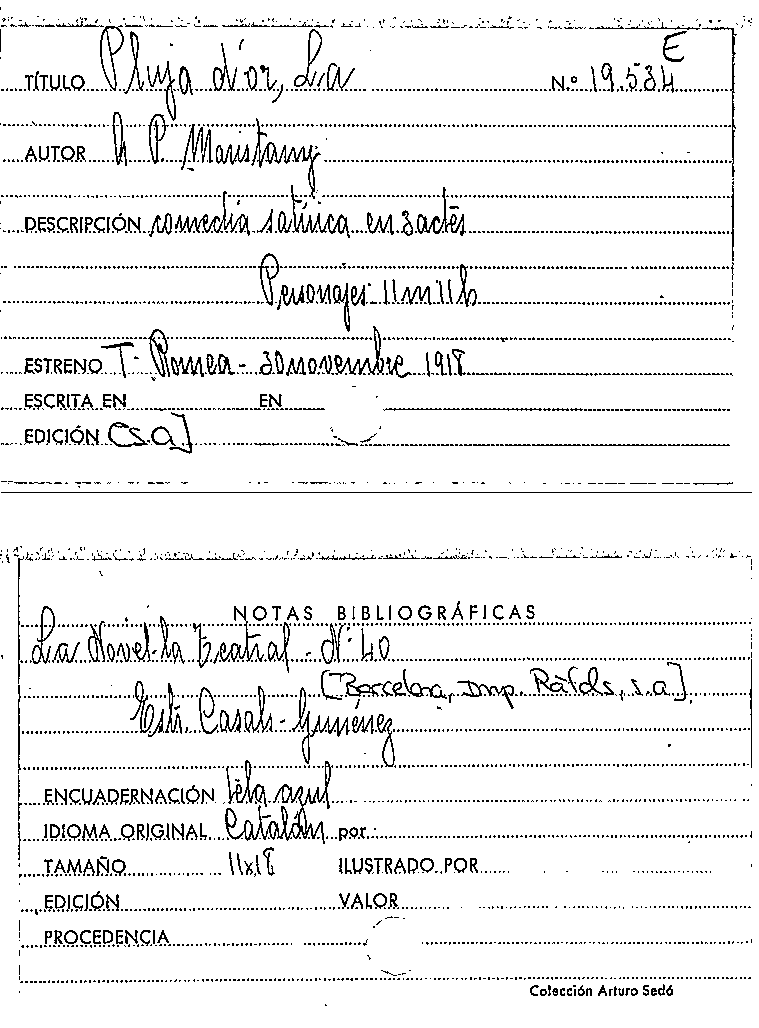 E
TÍTULO Pluja d'or, La N.º 19.534
AUTOR A. P. Maristany
DESCRIPCIÓN comedia satírica en 3 actes
Personajes 11 m 11 h
ESTRENO T. Romea - 30 novembre 1918
ESCRITA EN EN
EDICIÓN [s.a.]
NOTAS BIBLIOGRÁFICAS
La Novel·la Teatral - Nº 40
[Barcelona, Imp. Ràfols, s.a.].
Estr. Casals-Gimenez
ENCUADERNACIÓN tela azul
IDIOMA ORIGINAL Catalán por
TAMAÑO 11x18 ILUSTRADO POR
EDICIÓN VALOR
PROCEDENCIA
Colección Arturo Sedó